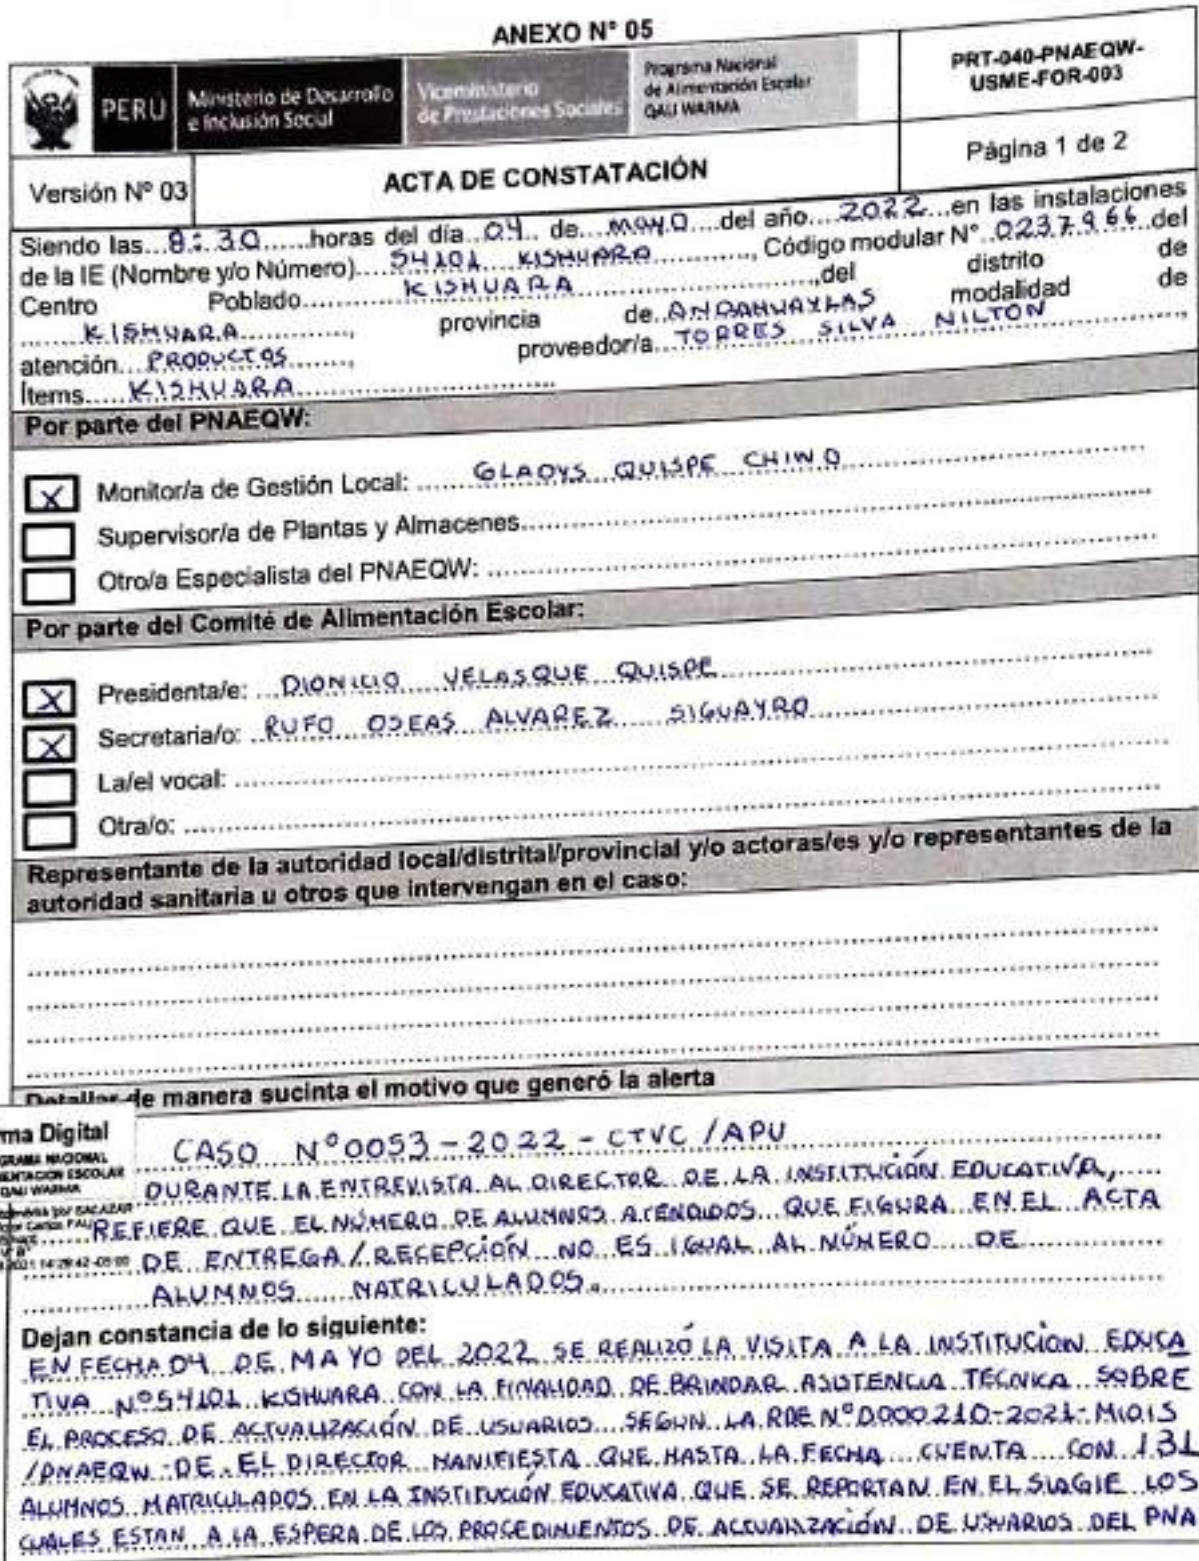 ANEXO N° 05
PERÚ
Ministerio de Desarrollo
e Inclusión Social
Viceministerio
de Prestaciones Sociales
Programa Nacional
de Alimentación Escolar
QALI WARMA
PRT-040-PNAEQW-
USME-FOR-003
Versión Nº 03
ACTA DE CONSTATACIÓN
Página 1 de 2
Siendo las...8:30......horas del día..04.. de...MAYO....del año....2022...en las instalaciones
de la IE (Nombre y/o Número)....54101 KISHUARA............., Código modular N°..0237966..del
Centro Poblado............KISHUARA..............................,del distrito de
......KISHUARA.............., provincia de..ANDAHUAYLAS modalidad de
atención...PRODUCTOS.........., proveedor/a...TORRES SILVA NILTON
Ítems.....KISHUARA..............................
Por parte del PNAEQW:
X Monitor/a de Gestión Local: .......GLADYS QUISPE CHINO..............................
Supervisor/a de Plantas y Almacenes..............................
Otro/a Especialista del PNAEQW: ..............................
Por parte del Comité de Alimentación Escolar:
X Presidenta/e: ...DIONICIO VELASQUE QUISPE..............................
X Secretaria/o: ..RUFO OSEAS ALVAREZ SIGUAYRO..............................
La/el vocal: ..............................
Otra/o: ..............................
Representante de la autoridad local/distrital/provincial y/o actoras/es y/o representantes de la
autoridad sanitaria u otros que intervengan en el caso:
Detallar de manera sucinta el motivo que generó la alerta
rma Digital
GRAMA NACIONAL
MENTACION ESCOLAR
QALI WARMA
por SALAZAR
2021 14:28:42 -05:00
CASO N°0053-2022-CTVC/APU
DURANTE LA ENTREVISTA AL DIRECTOR DE LA INSTITUCIÓN EDUCATIVA,
REFIERE QUE EL NÚMERO DE ALUMNOS ATENDIDOS QUE FIGURA EN EL ACTA
DE ENTREGA/RECEPCIÓN NO ES IGUAL AL NÚMERO DE
ALUMNOS MATRICULADOS.
Dejan constancia de lo siguiente:
EN FECHA 04 DE MAYO DEL 2022 SE REALIZÓ LA VISITA A LA INSTITUCIÓN EDUCA
TIVA N°54101 KISHUARA CON LA FINALIDAD DE BRINDAR ASISTENCIA TÉCNICA SOBRE
EL PROCESO DE ACTUALIZACIÓN DE USUARIOS SEGUN LA RDE N°D000210-2021-MIDIS
/PNAEQW-DE. EL DIRECTOR MANIFIESTA QUE HASTA LA FECHA CUENTA CON 131
ALUMNOS MATRICULADOS EN LA INSTITUCIÓN EDUCATIVA QUE SE REPORTAN EN EL SIAGIE LOS
CUALES ESTAN A LA ESPERA DE LOS PROCEDIMIENTOS DE ACTUALIZACIÓN DE USUARIOS DEL PNA